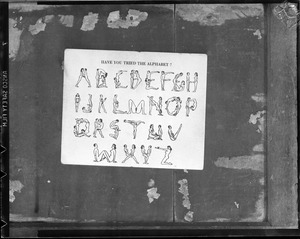 HAVE YOU TRIED THE ALPHABET ?
ABCDEFGH
IJKLMNOP
QRSTUV
WXYZ